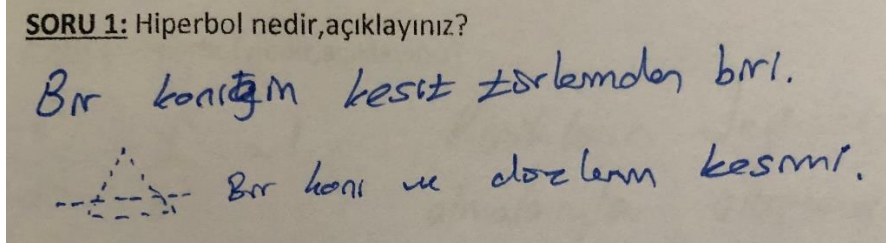 SORU 1: Hiperbol nedir,açıklayınız?
Bir koniğin kesit türlerinden biri.
Bir koni ve düzlemin kesimi.